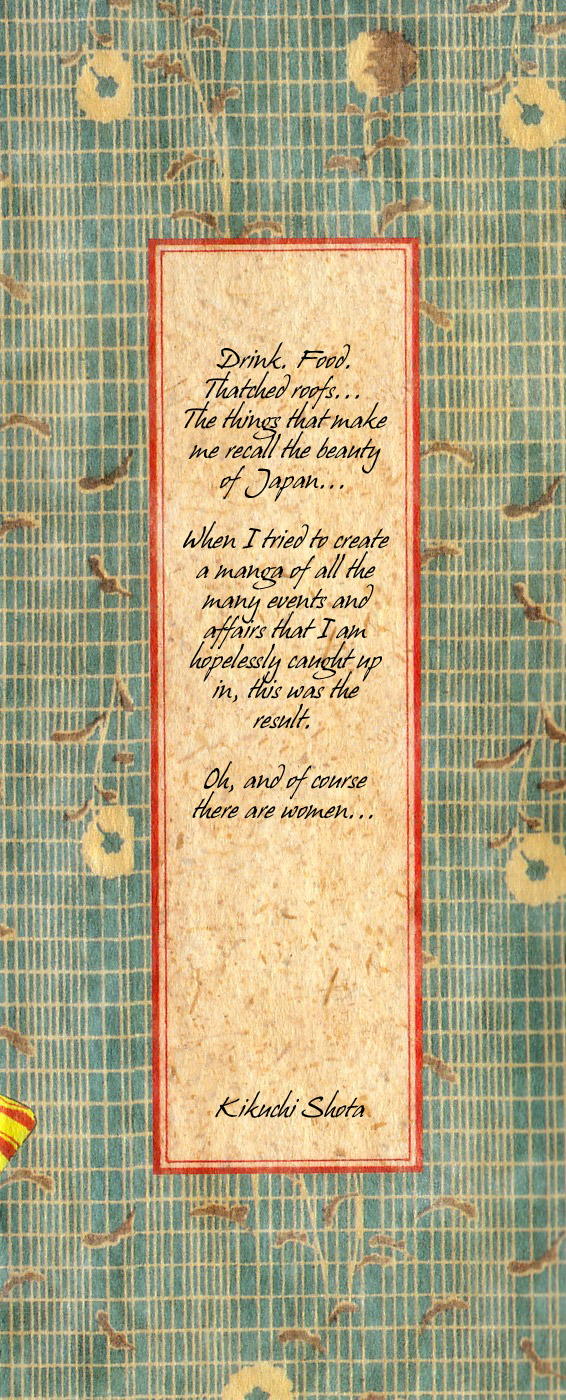 Drink. Food.
Thatched roofs...
The things that make
me recall the beauty
of Japan...
When I tried to create
a manga of all the
many events and
affairs that I am
hopelessly caught up
in, this was the
result.
Oh, and of course
there are women...
Kikuchi Shota